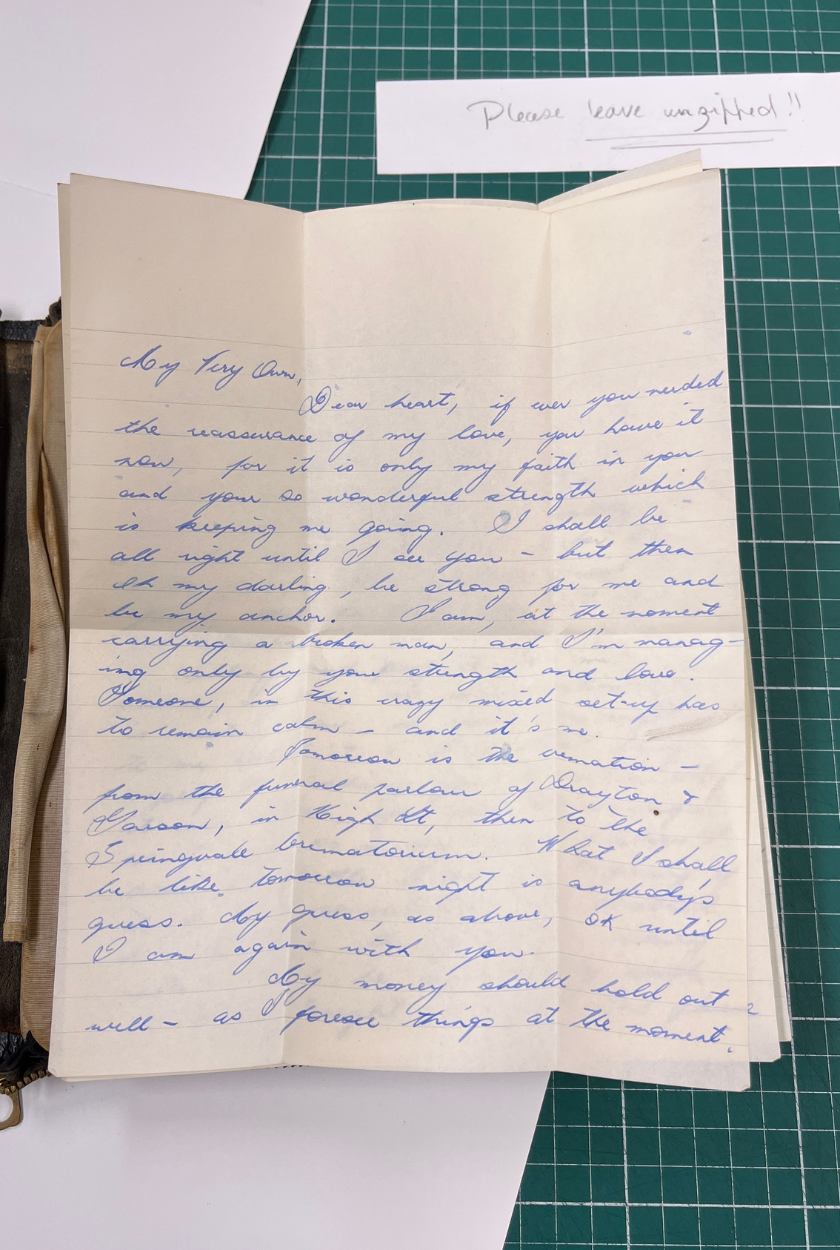 Please leave unzipped!!
My Very Own,
Dear heart, if ever you needed
the reassurance of my love, you have it
now, for it is only my faith in you
and your so wonderful strength which
is keeping me going. I shall be
all right until I see you - but then
Oh my darling, be strong for me and
be my anchor. I am, at the moment
carrying a broken man, and I'm manag-
ing only by your strength and love.
Someone, in this crazy mixed set-up has
to remain calm - and it's me.
Tomorrow is the cremation -
from the funeral parlour of Drayton &
Garson, in High St, then to the
Springvale Crematorium. What I shall
be like tomorrow night is anybody's
guess. My guess, as above, OK until
I am again with you.
My money should hold out
well - as I foresee things at the moment.